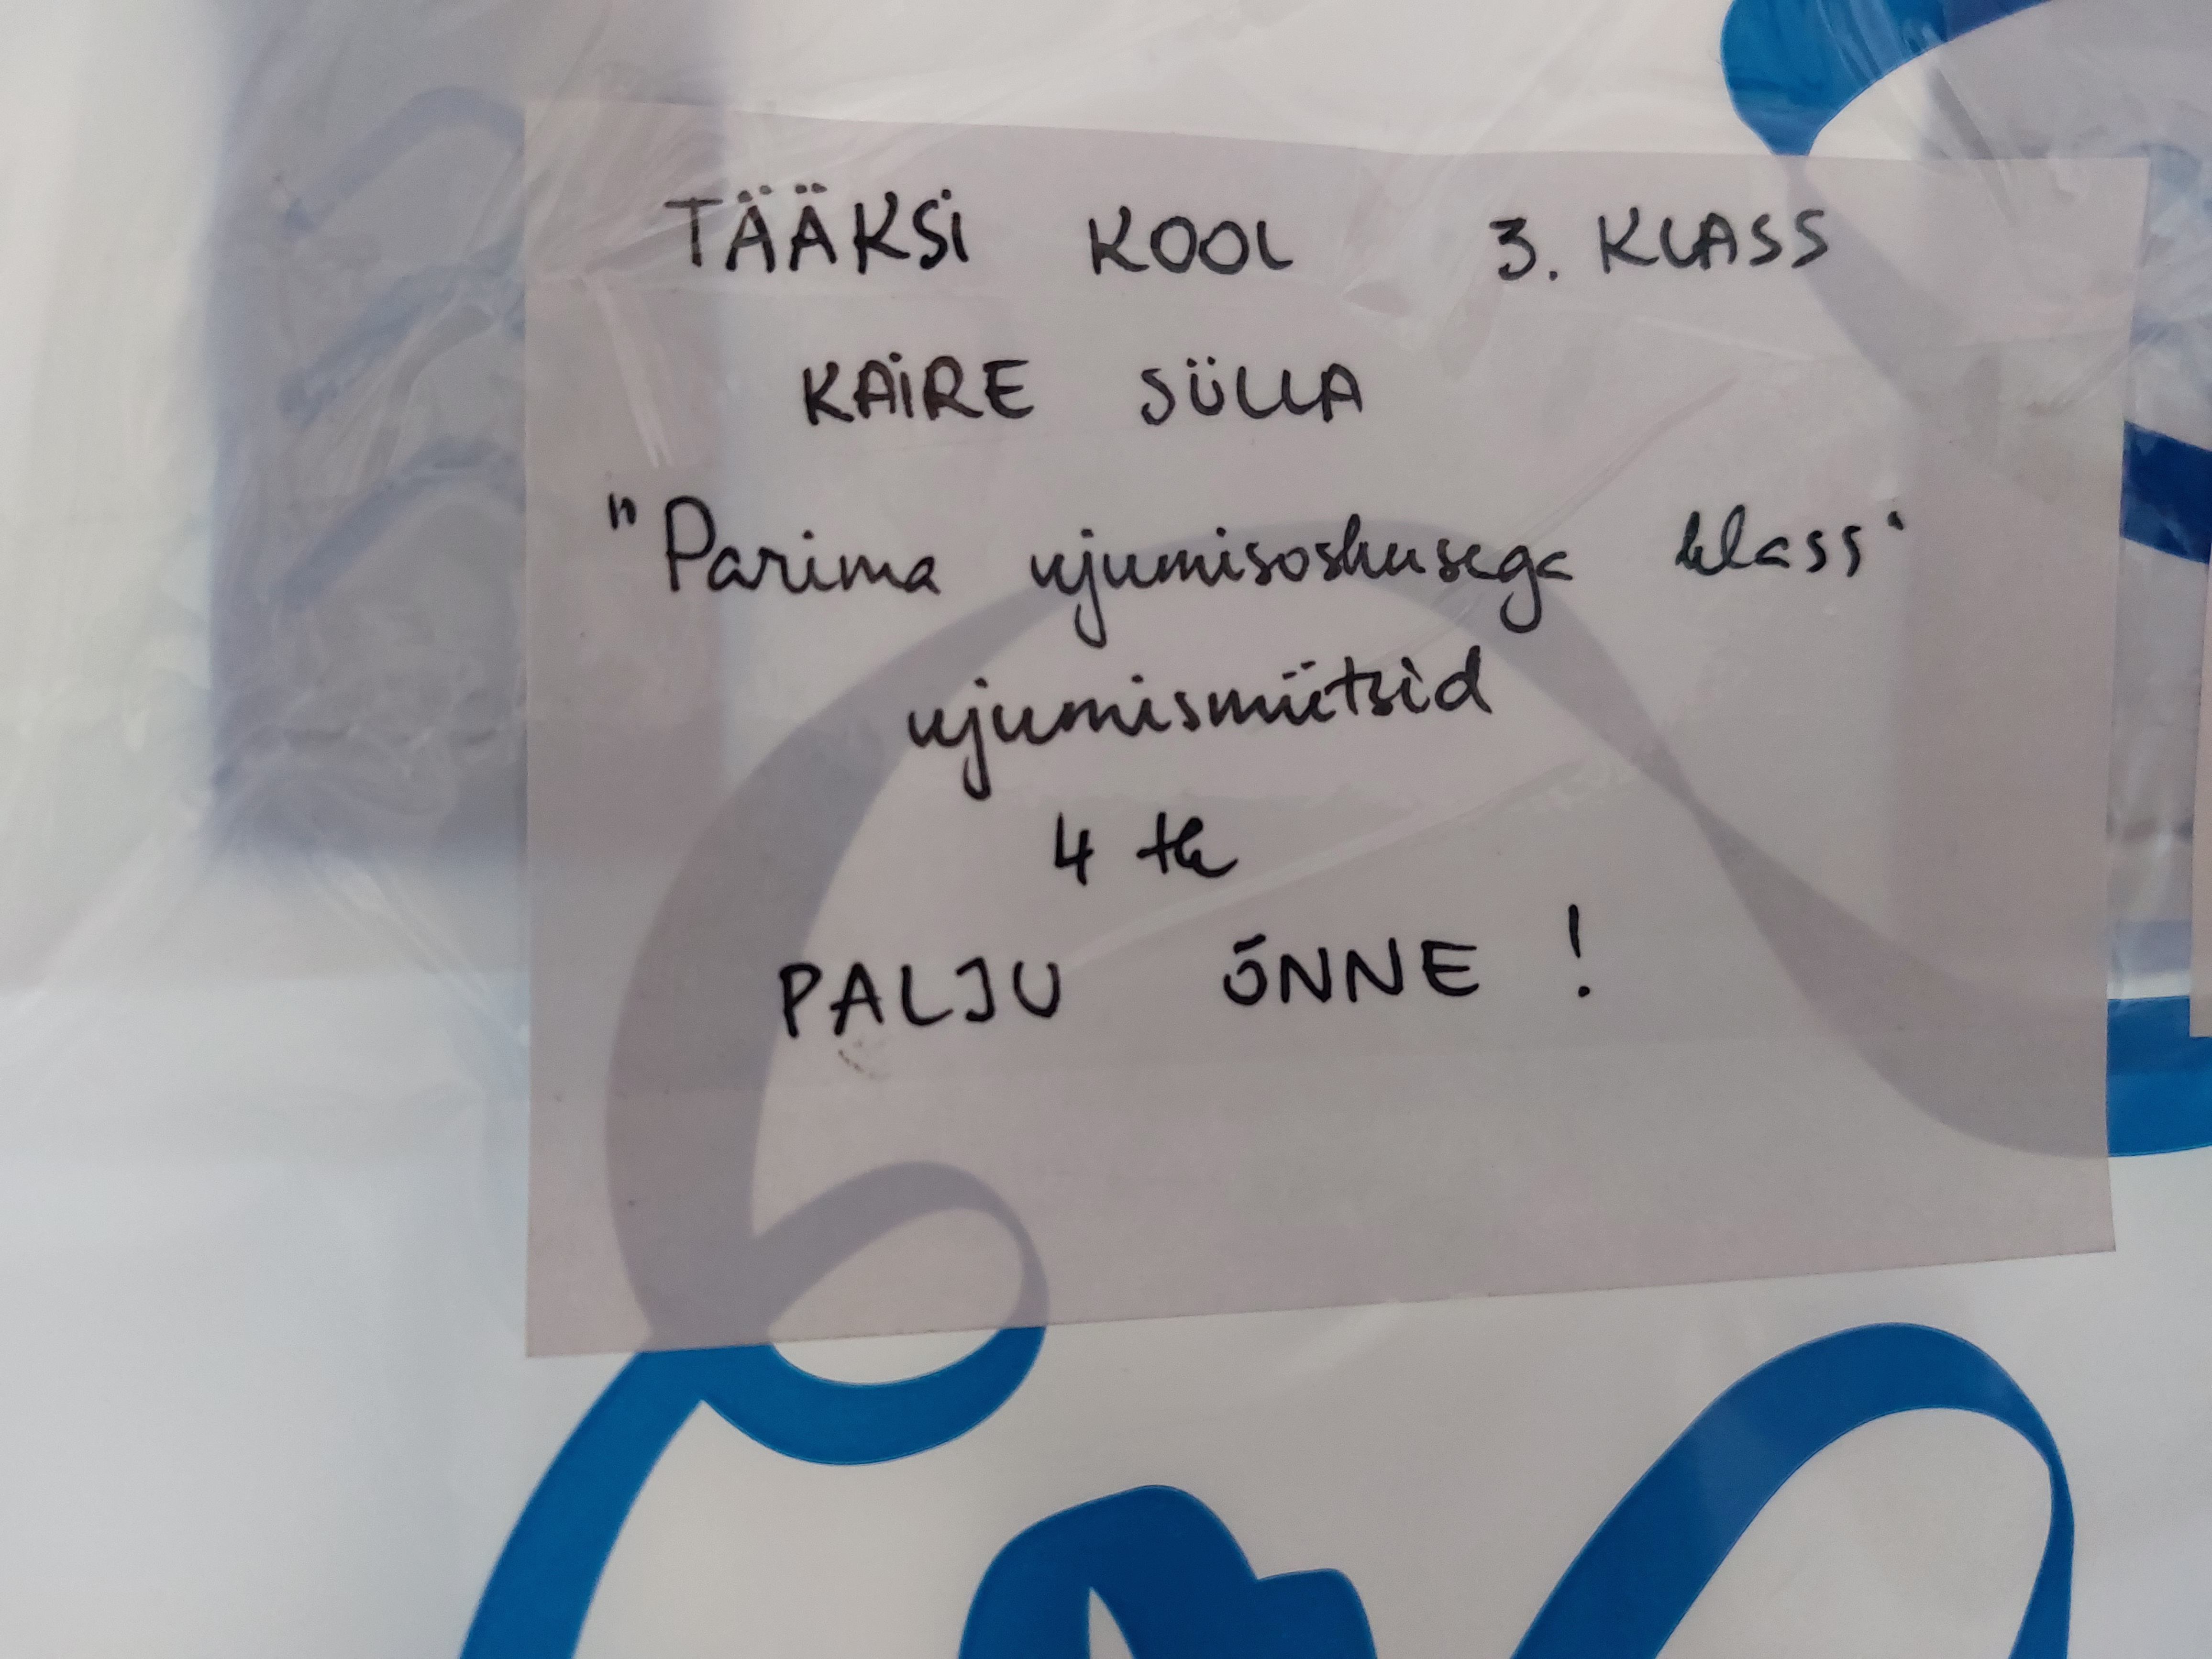 TÄÄKSi KOOL 3. KLASS
KAiRE SÜLLA
"Parima ujumisoskusega klass"
ujumismütsid
4 tk
PALJU ÕNNE !